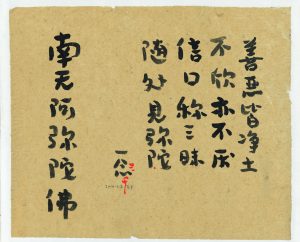 善恶皆净土
不欣亦不厌
信口称三昧
随处见弥陀
南无阿弥陀佛